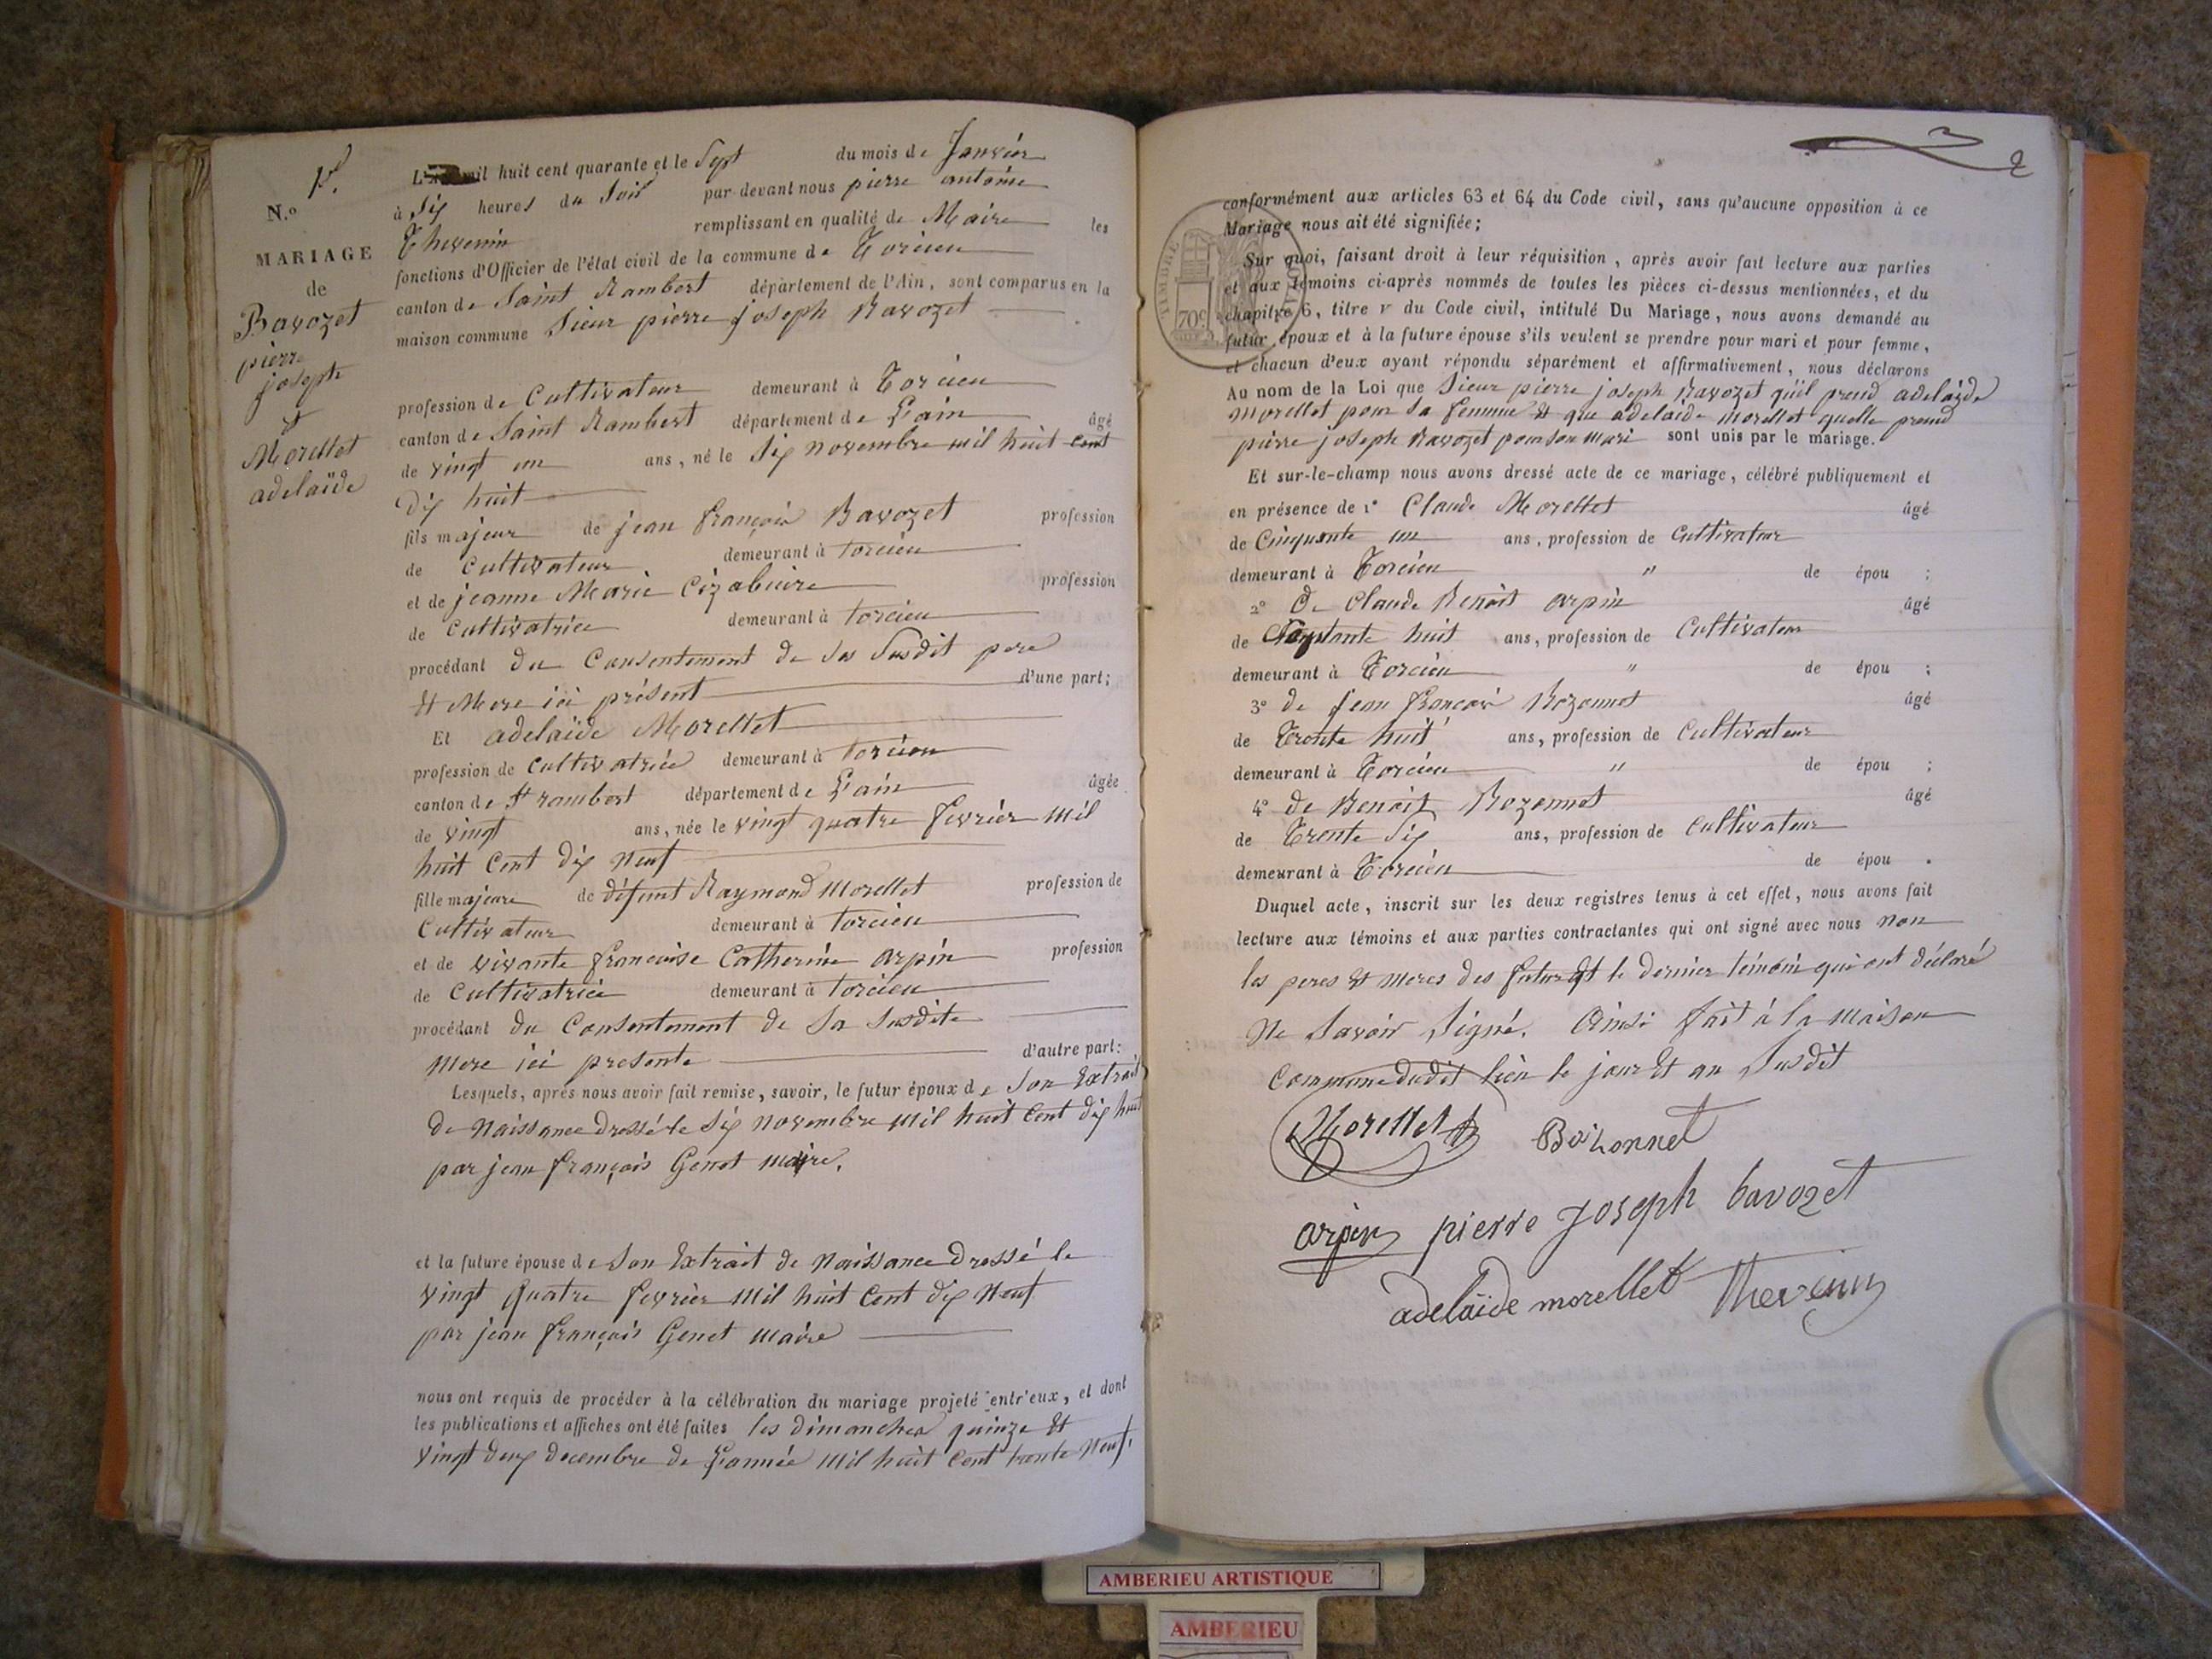 N.º 1er.
MARIAGE
de
Bavozet
pierre
joseph
et
Morellet
adelaïde
L'an mil huit cent quarante et le Sept du mois de Janvier
à Six heures du Soir par-devant nous pierre antoine
Thevenin remplissant en qualité de Maire les
fonctions d'Officier de l'état civil de la commune de Torcieu
canton de Saint Rambert département de l'Ain, sont comparus en la
maison commune Sieur pierre joseph Bavozet
profession de Cultivateur demeurant à Torcieu
canton de Saint Rambert département de L'ain âgé
de vingt un ans, né le Six novembre mil huit cent
dix huit
fils majeur de jean françois Bavozet profession
de Cultivateur demeurant à torcieu
et de jeanne Marie profession
de Cultivatrice demeurant à torcieu
procédant du Consentement de ses Susdit pere
et Mere ici présent d'une part;
Et adelaïde Morellet
profession de Cultivatrice demeurant à torcieu
canton de St rambert département de L'ain âgée
de vingt ans, née le vingt quatre fevrier mil
huit Cent dix neuf
fille majeure de défunt Raymond Morellet profession de
Cultivateur demeurant à torcieu
et de vivante francoise Catherine arpin profession
de Cultivatrice demeurant à torcieu
procédant du Consentement de Sa Susdite
mere ici presente d'autre part:
Lesquels, après nous avoir fait remise, savoir, le futur époux de Son Extrait
de Naissance dressé le Six novembre mil huit Cent dix huit
par jean françois Genet maire.
et la future épouse de Son Extrait de Naissance dressé le
vingt quatre fevrier mil huit Cent dix neuf
par jean françois Genet maire
nous ont requis de procéder à la célébration du mariage projeté entr'eux, et dont
les publications et affiches ont été faites les dimanches quinze et
vingt deux decembre de L'année mil huit Cent trente neuf.
2
conformément aux articles 63 et 64 du Code civil, sans qu'aucune opposition à ce
Mariage nous ait été signifiée;
TIMBRE
70c
Sur quoi, faisant droit à leur réquisition, après avoir fait lecture aux parties
et aux témoins ci-après nommés de toutes les pièces ci-dessus mentionnées, et du
chapitre 6, titre v du Code civil, intitulé Du Mariage, nous avons demandé au
futur époux et à la future épouse s'ils veulent se prendre pour mari et pour femme,
et chacun d'eux ayant répondu séparément et affirmativement, nous déclarons
Au nom de la Loi que Sieur pierre joseph Bavozet qu'il prend adelaïde
Morellet pour Sa femme et que adelaïde Morellet quelle prend
pierre joseph Bavozet pour son mari sont unis par le mariage.
Et sur-le-champ nous avons dressé acte de ce mariage, célébré publiquement et
en présence de 1º Claude Morellet âgé
de Cinquante un ans, profession de Cultivateur
demeurant à Torcieu " de épou ;
2º De Claude Benoit arpin âgé
de Soixante huit ans, profession de Cultivateur
demeurant à Torcieu " de épou ;
3º de jean françois Bozonnet âgé
de Trente huit ans, profession de Cultivateur
demeurant à Torcieu " de épou ;
4º de Benoit Bozonnet âgé
de Trente Six ans, profession de Cultivateur
demeurant à Torcieu de épou .
Duquel acte, inscrit sur les deux registres tenus à cet effet, nous avons fait
lecture aux témoins et aux parties contractantes qui ont signé avec nous non
les peres et meres des futurs et le dernier témoin qui ont déclaré
Ne Savoir Signé. Ainsi fait à la maison
Commune dudit lieu le jour et an Susdit
Morellet Bozonnet
arpin pierre Joseph bavozet
adelaïde morellet Thevenin
AMBERIEU ARTISTIQUE
AMBERIEU